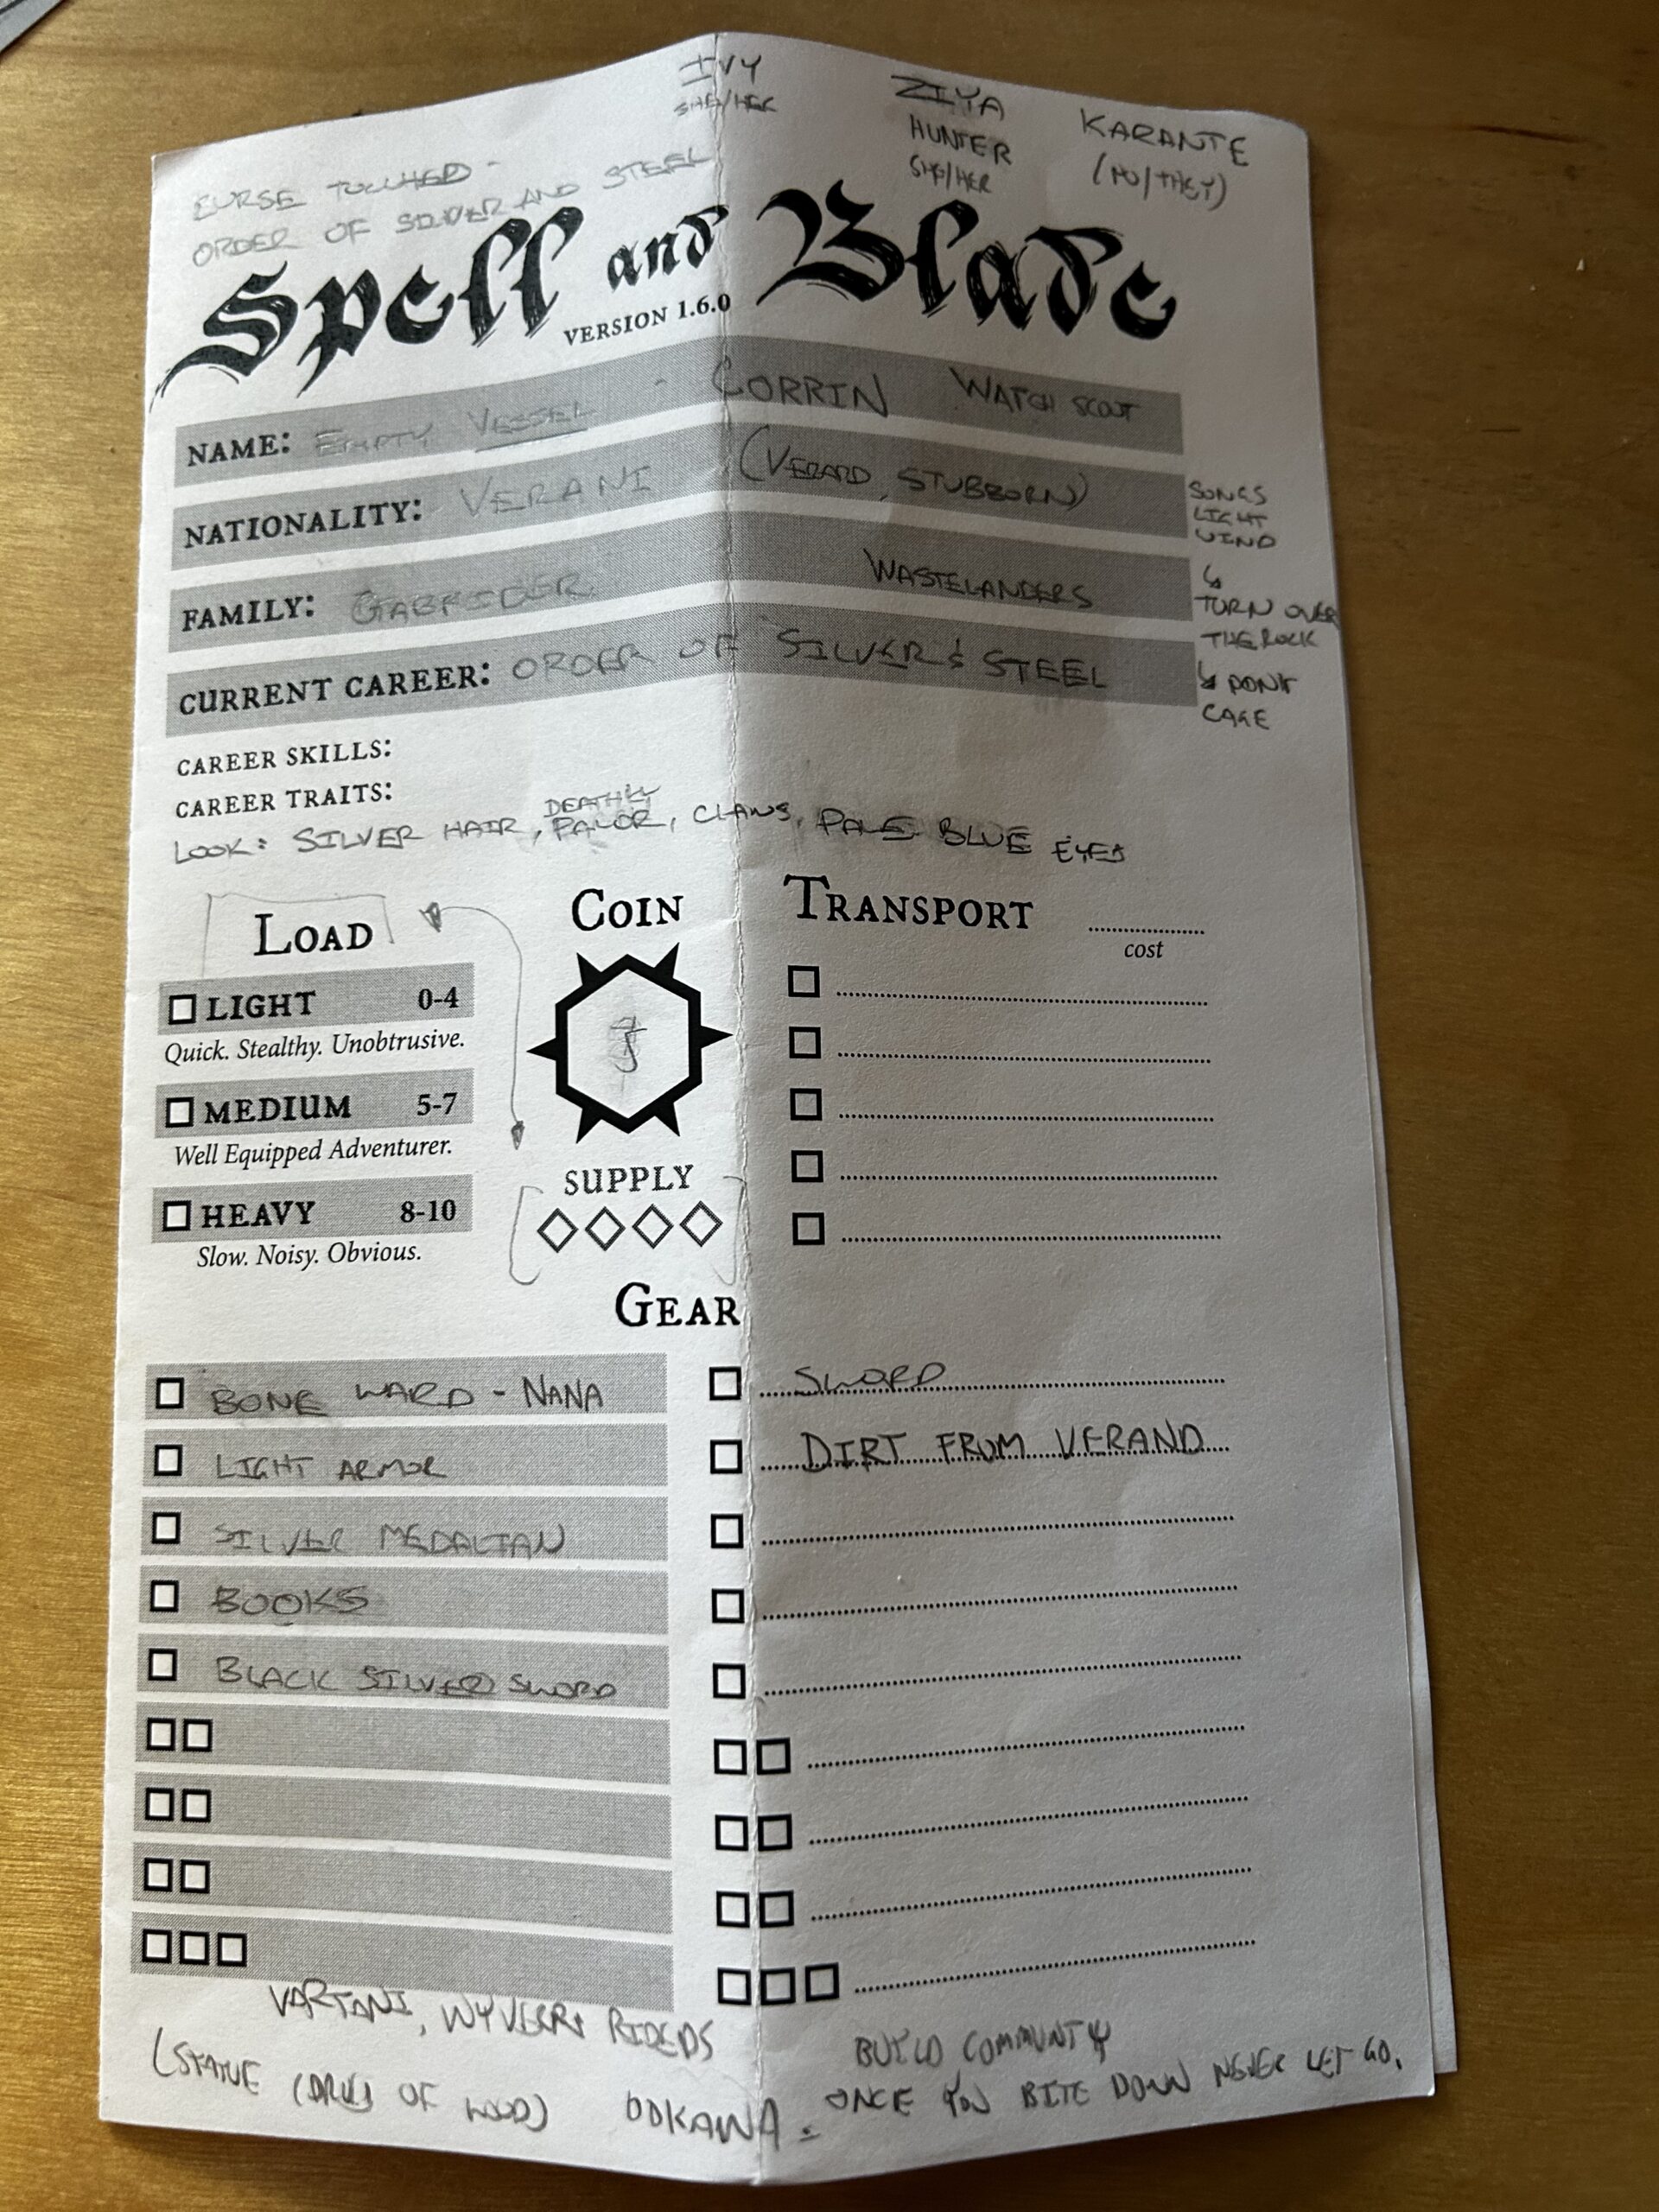 IVY
SHE/HER
ZIYA
HUNTER
SHE/HER
KARANTE
CURSE TOUCHED -
ORDER OF SILVER AND STEEL
Spell and Blade
VERSION 1.6.0
NAME: EMPTY VESSEL - CORRIN WATCH SCOUT
NATIONALITY: VERANI (VERARD, STUBBORN)
FAMILY: WASTELANDERS
CURRENT CAREER: ORDER OF SILVER & STEEL
SONGS
LIGHT
WIND
↳
TURN OVER
THE ROCK
↳ DONT
CAGE
CAREER SKILLS:
CAREER TRAITS:
LOOK: SILVER HAIR, DEATHLY PALOR, CLAWS, PALE BLUE EYES
LOAD
LIGHT 0-4
Quick. Stealthy. Unobtrusive.
MEDIUM 5-7
Well Equipped Adventurer.
HEAVY 8-10
Slow. Noisy. Obvious.
COIN
SUPPLY
TRANSPORT
cost
GEAR
BONE WARD - NANA
LIGHT ARMOR
SILVER MEDALIAN
BOOKS
BLACK SILVER SWORD
SWORD
DIRT FROM VERAND
VARTANI, WYVERN RIDERS
(STATUE OF WOOD)
BUILD COMMUNITY
ODKAWA - ONCE YOU BITE DOWN NEVER LET GO.